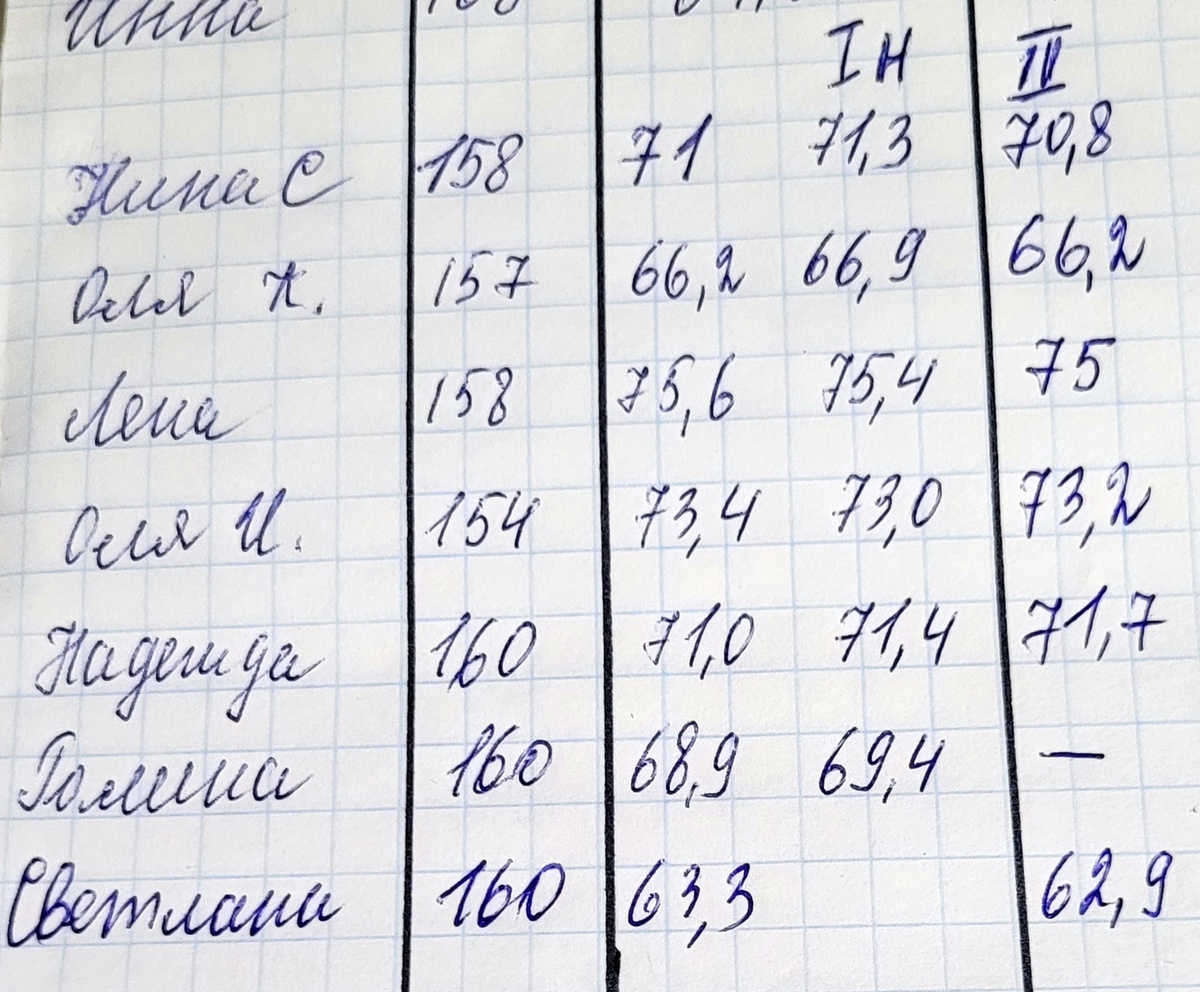 Инна 168
I н II
Нина С 158 71 71,3 70,8
Оля К. 157 66,2 66,9 66,2
Лена 158 75,6 75,4 75
Оля И. 154 73,4 73,0 73,2
Надежда 160 71,0 71,4 71,7
Галина 160 68,9 69,4 —
Светлана 160 63,3 62,9